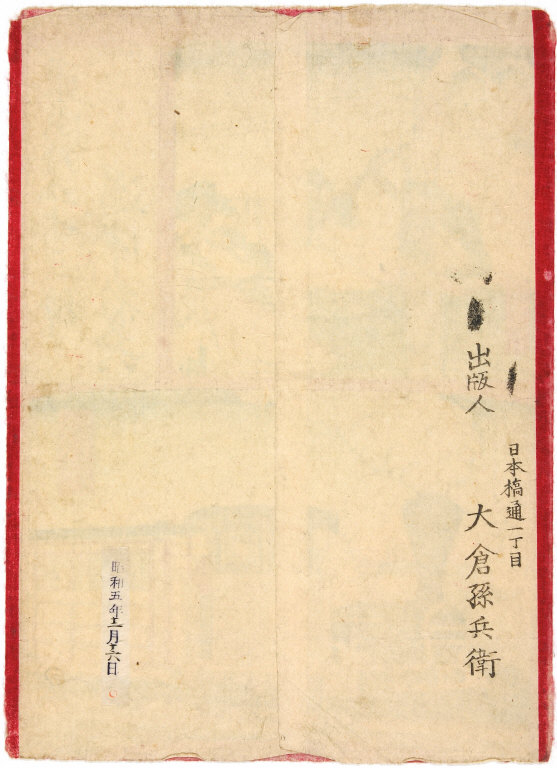 日本橋通一丁目
出版人
大倉孫兵衛
昭和五年十二月十六日